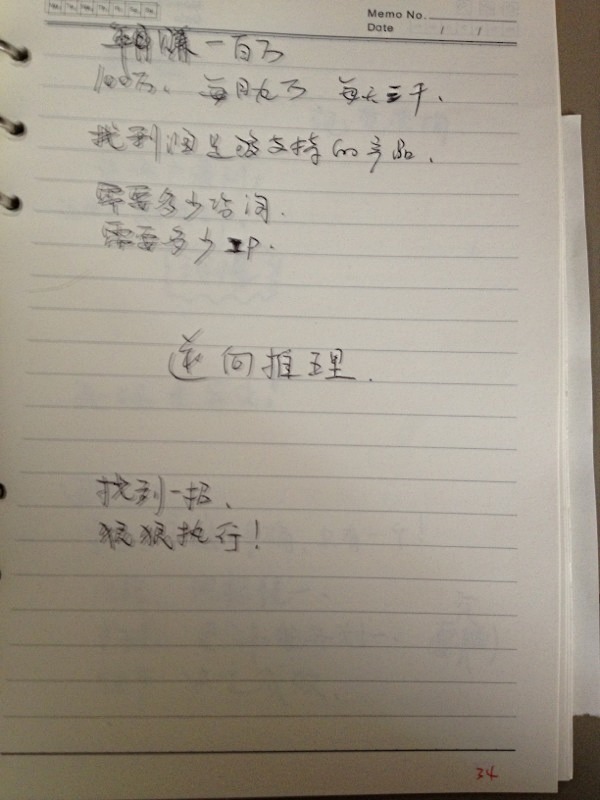 Memo No.
Date / /
年赚一百万
100万、每月九万 每天三千.
找到满足该支持的产品.
需要多少咨询.
需要多少IP.
逆向推理.
找到一招、
狠狠执行!
34